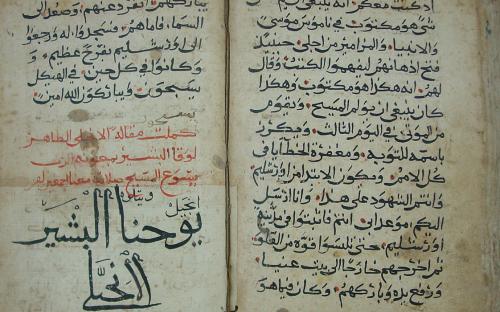 كنت معكم انه ينبغي ان
شي هو مكتوب في ناموس موسى
والانبيا والمزامير من اجلي حينيذ
فتح اذهانهم ليفهموا الكتب وقال
لهم انه هكذا هو مكتوب وهكذا
كان ينبغي ان يولم المسيح ويقوم
من الموتى في اليوم الثالث ويكرز
باسمه للتوبه ومغفرة الخطايا في
كل الامم ويكون الابتدا من اورشليم
وانتم الشهود على هذا وانا ارسل
اليكم موعد ابي انتم فاثبتوا في مدينة
اورشليم حتى تلبسوا قوه من العلو
ثم اخرجهم خارجا الى بيت عنيا
ورفع يده وباركهم وكان فيما هو
يباركهم انفرد عنهم وصعد الى
السما فاما هم فسجدوا له ورجعوا
الى اورشليم بفرح عظيم
وكانوا في كل حين في الهيكل
يسبحون ويباركون الله امين
كملت مقاله الانجيلي الطاهر
لوقا البشير بمعونة الرب
يسوع المسيح صلاته معنا
ويتلوه انجيل
يوحنا البشير
الانجيلي